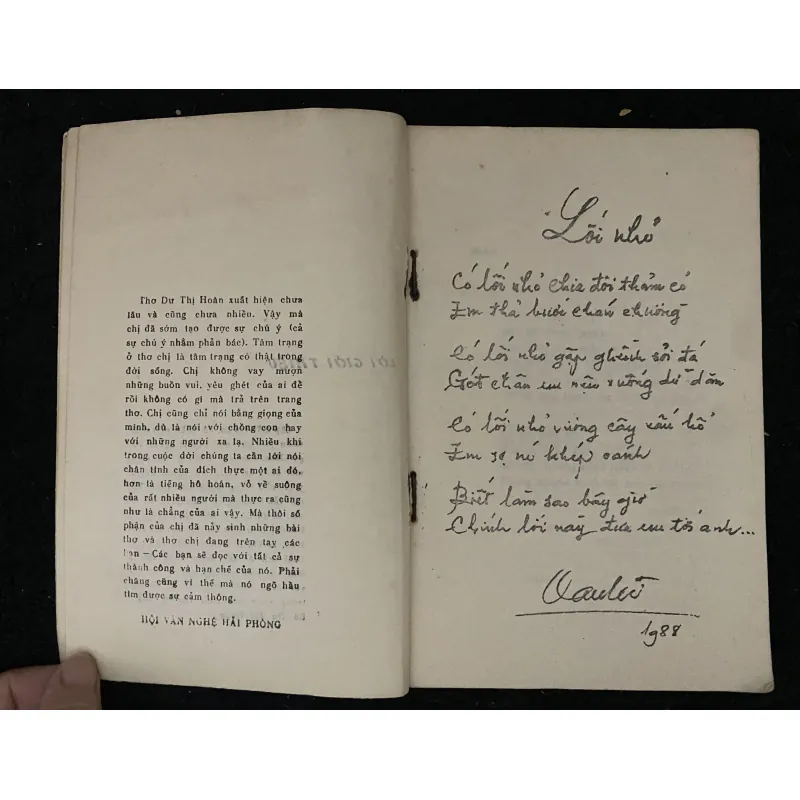 Thơ Dư Thị Hoàn xuất hiện chưa
lâu và cũng chưa nhiều. Vậy mà
chị đã sớm tạo được sự chú ý (cả
sự chú ý nhằm phản bác). Tâm trạng
ở thơ chị là tâm trạng có thật trong
đời sống. Chị không vay mượn
những buồn vui, yêu ghét của ai để
rồi không có gì mà trả trên trang
thơ. Chị cũng chỉ nói bằng giọng của
mình, dù là nói với chồng con hay
với những người xa lạ. Nhiều khi
trong cuộc đời chúng ta cần lời nói
chân tình của đích thực một ai đó,
hơn là tiếng hô hoán, vỗ về suông
của rất nhiều người mà thực ra cũng
như là chẳng của ai vậy. Mà thôi số
phận của chị đã nảy sinh những bài
thơ và thơ chị đang trên tay các
bạn — Các bạn sẽ đọc với tất cả sự
thành công và hạn chế của nó. Phải
chăng cũng vì thế mà nó ngõ hầu
tìm được sự cảm thông.
HỘI VĂN NGHỆ HẢI PHÒNG
LỜI GIỚI THIỆU
Lối nhỏ
Có lối nhỏ chia đôi thảm cỏ
Em thả bước chân chường
Có lối nhỏ gập ghềnh sỏi đá
Gót chân em nện xuống dữ dằn
Có lối nhỏ vướng cây xấu hổ
Em sợ nó khép cánh
Biết làm sao bây giờ
Chính lối này đưa em tới anh...
1988